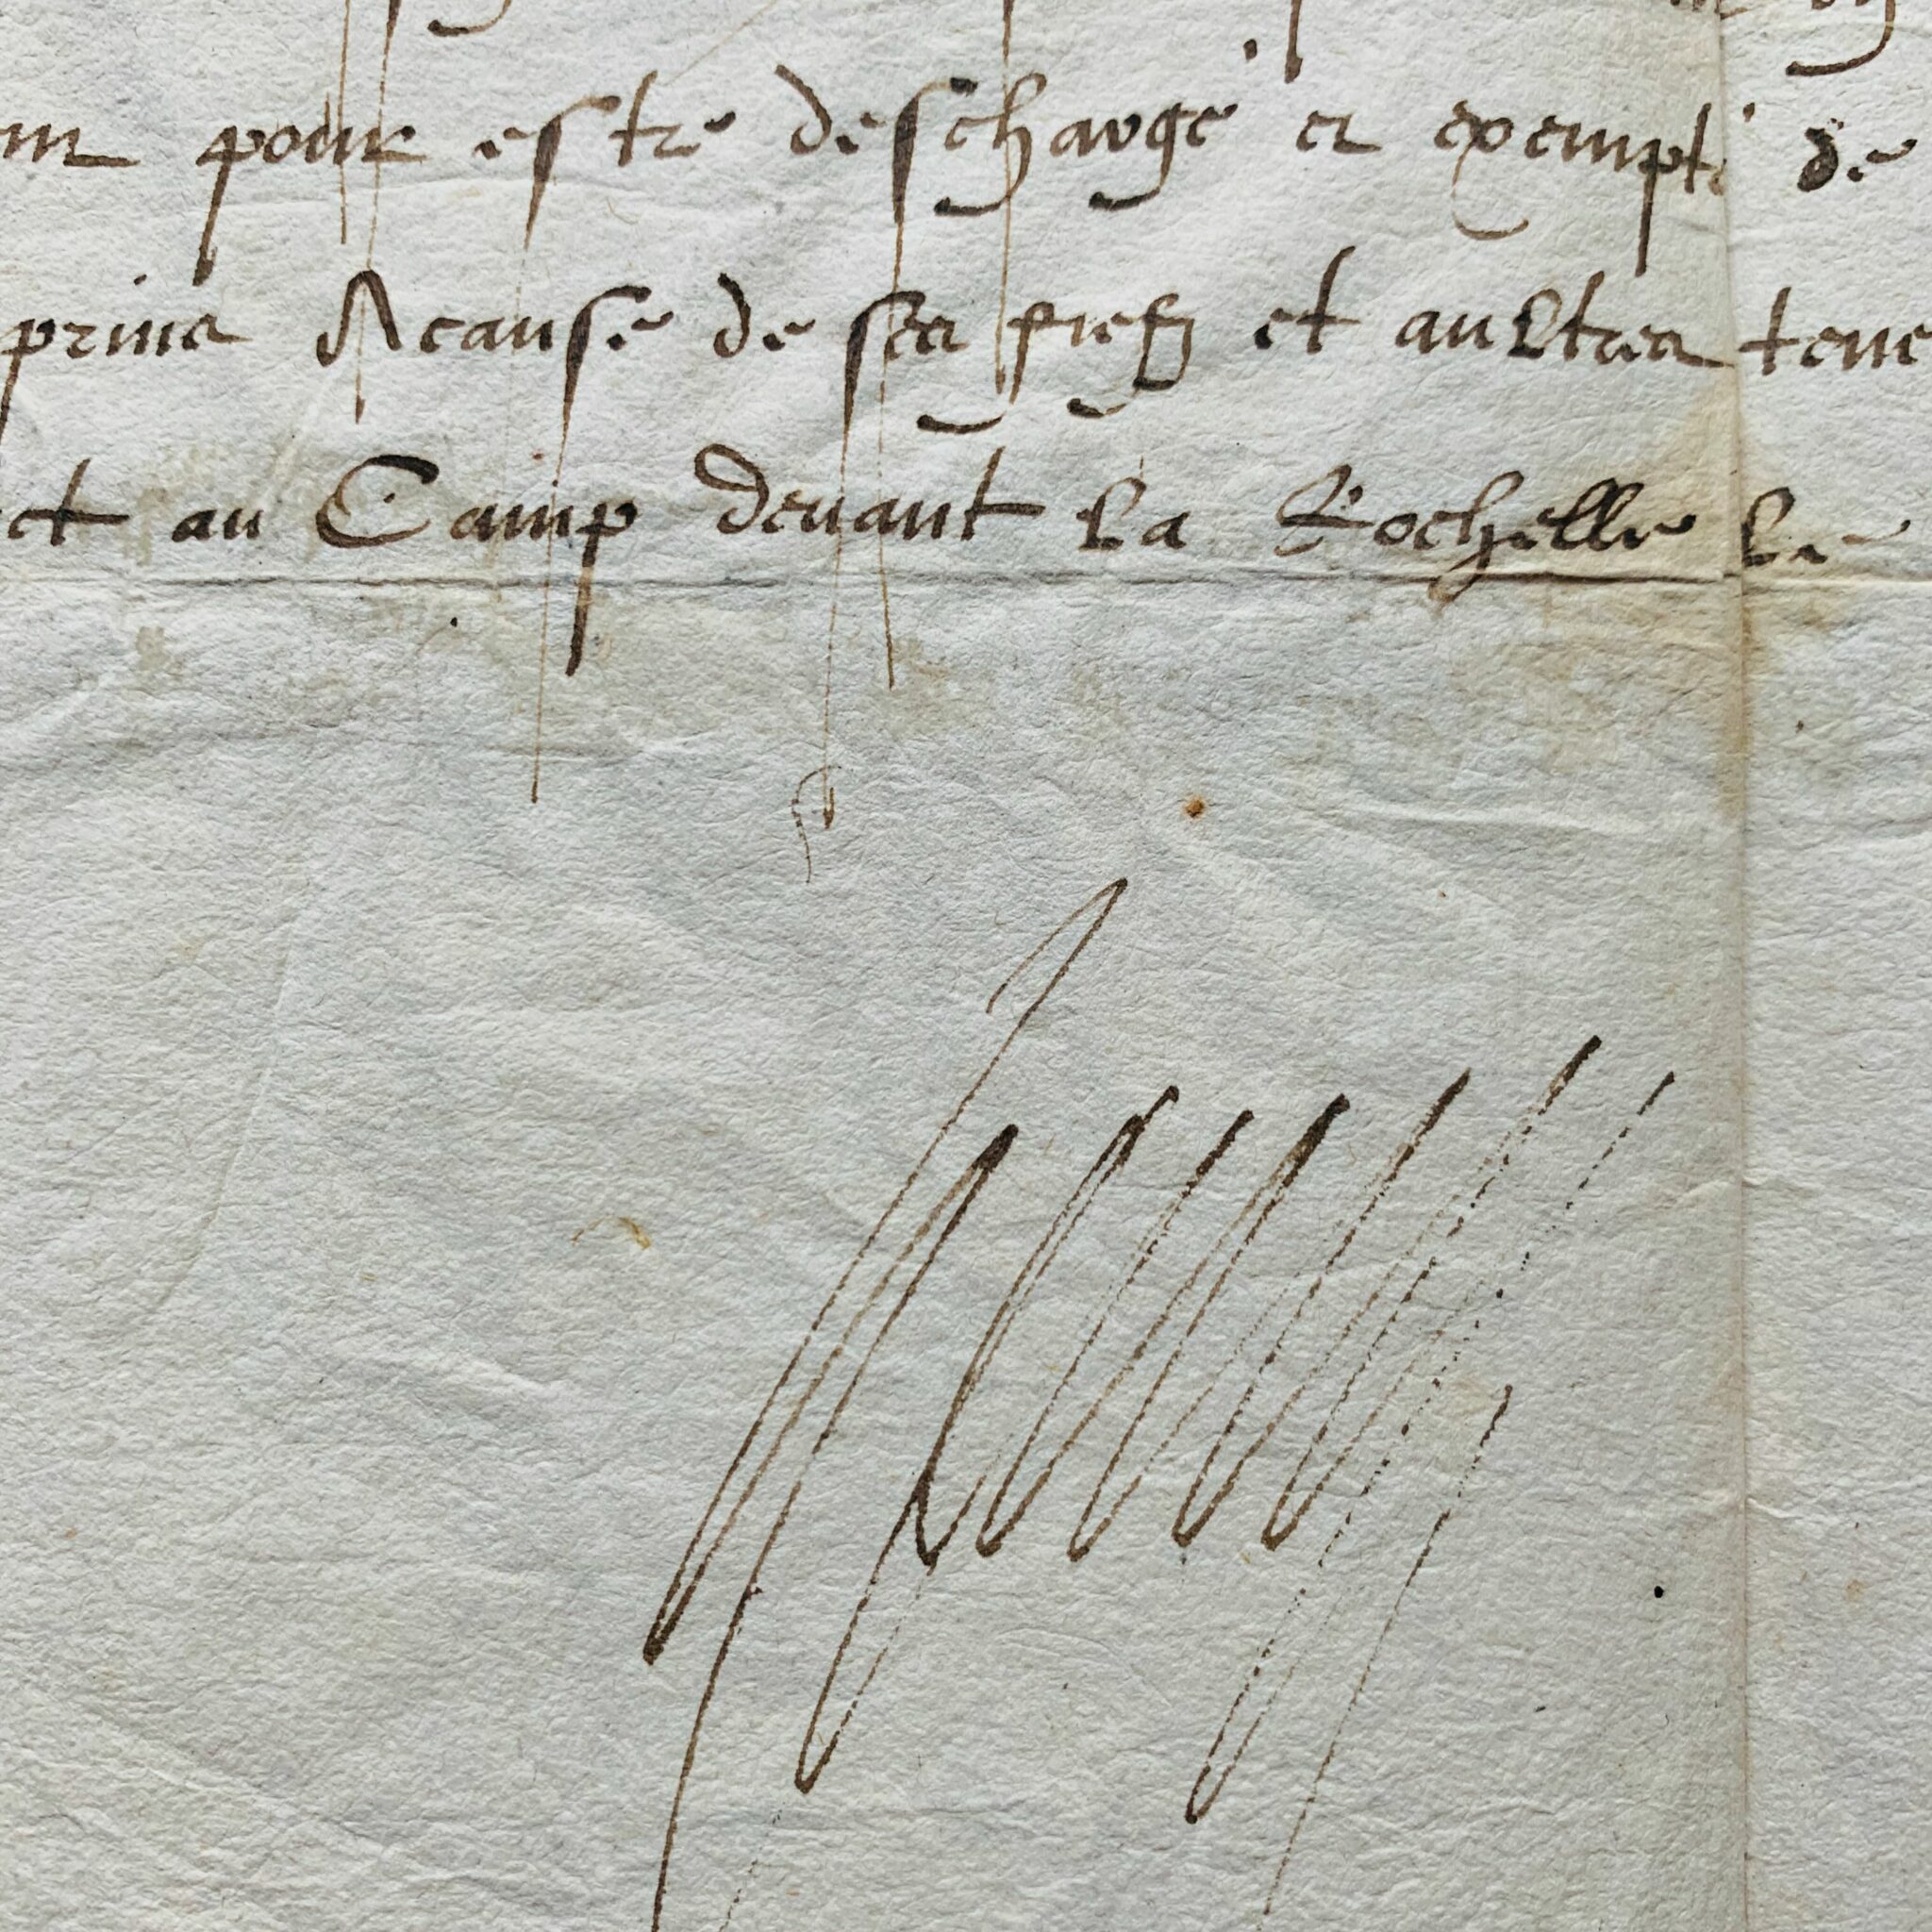 pour estre deschargé et exempté de
prins A cause de ses fiefz et aultres tene
ct au Camp devant La Rochelle Le